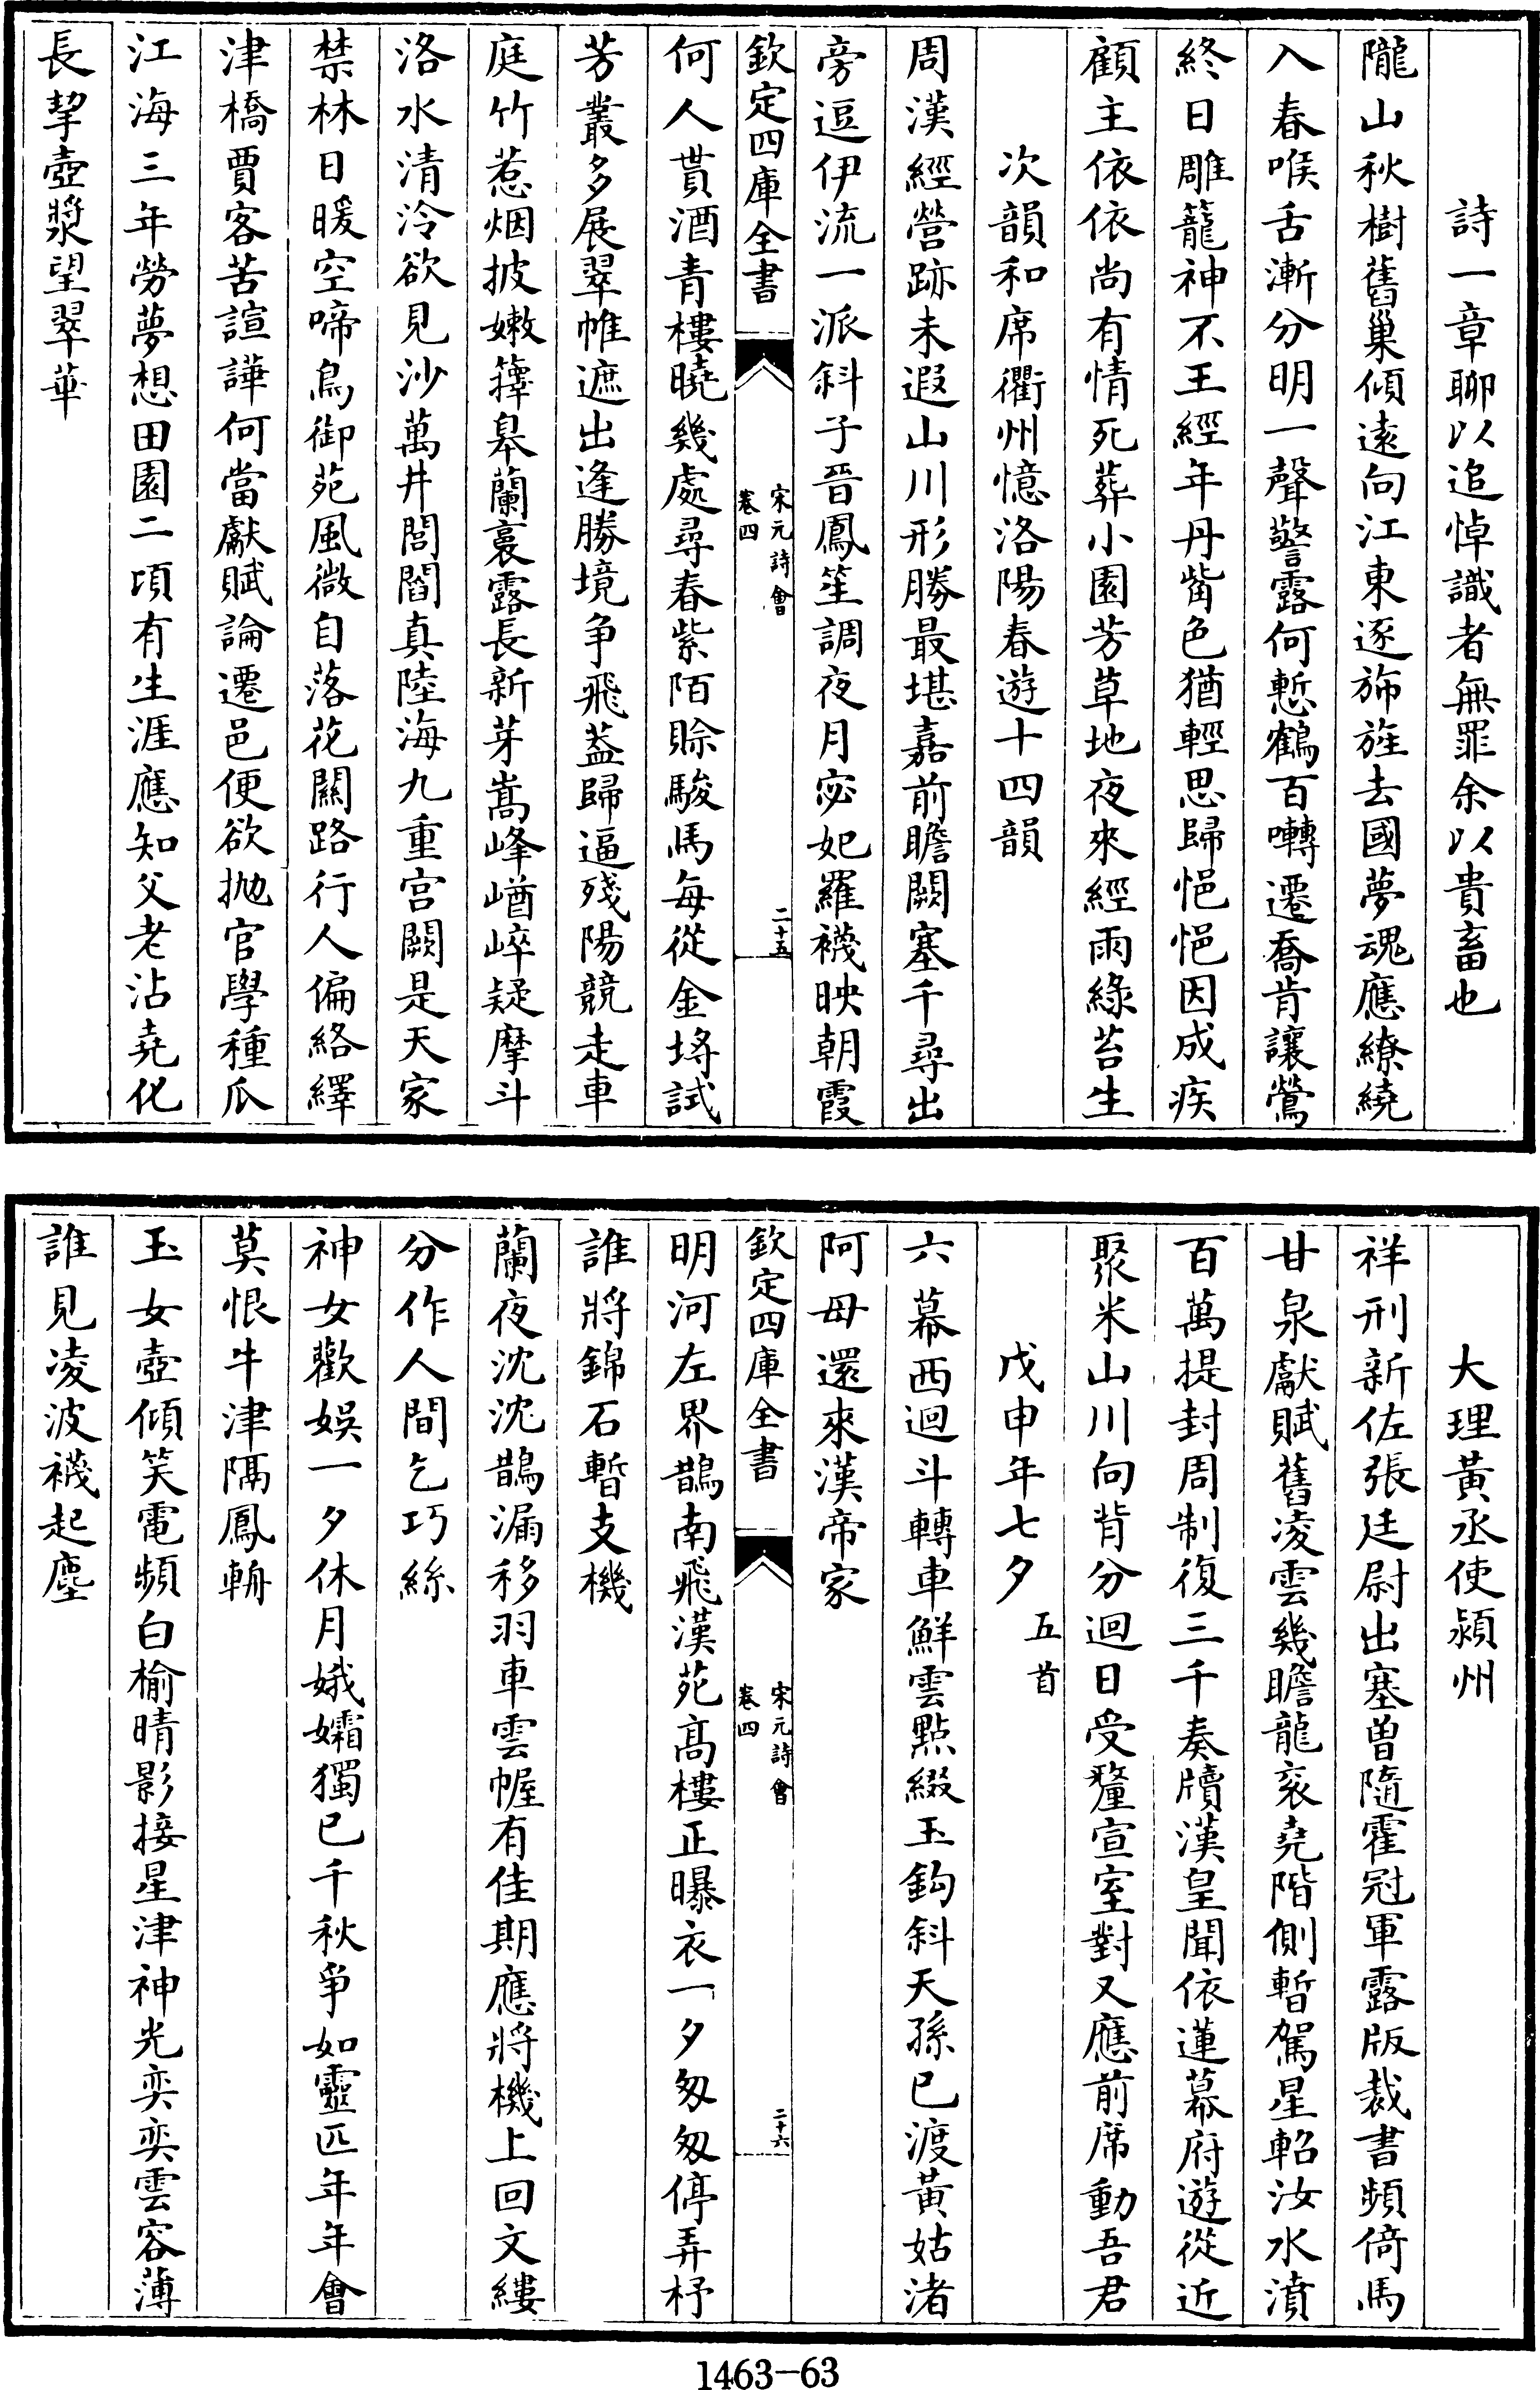 詩一章聊以追悼識者無罪余以貴畜也
隴山秋樹舊巢傾遠向江東逐斾旌去國夢魂應繚繞
入春喉舌漸分明一聲警露何慙鶴百囀遷喬肯讓鶯
終日雕籠神不王經年丹觜色猶輕思歸悒悒因成疾
顧主依依尚有情死葬小園芳草地夜來經雨綠苔生
次韻和席衢州憶洛陽春遊十四韻
周漢經營跡未遐山川形勝最堪嘉前瞻闕塞千尋出
旁逗伊流一派斜子晉鳳笙調夜月宓妃羅襪映朝霞
何人貰酒青樓曉幾處尋春紫陌賒駿馬每從金埓試
芳叢多展翠帷遮出逢勝境争飛葢歸逼殘陽競走車
庭竹惹烟披嫩籜皋蘭裛露長新芽嵩峰崷崪疑摩斗
洛水清泠欲見沙萬井閭閻真陸海九重宫闕是天家
禁林日暖空啼鳥御苑風微自落花闗路行人偏絡繹
津橋賈客苦諠譁何當獻賦論遷邑便欲抛官學種瓜
江海三年勞夢想田園二項有生涯應知父老沾堯化
長挈壺漿望翠華
欽定四庫全書
宋元詩會
卷四
二十五
大理黄丞使潁州
祥刑新佐張廷尉出塞曾隨霍冠軍露版裁書頻倚馬
甘泉獻賦舊凌雲幾瞻龍衮堯階側暫駕星軺汝水濆
百萬提封周制復三千奏牘漢皇聞依蓮幕府遊從近
聚米山川向背分迴日受釐宣室對又應前席動吾君
戊申年七夕五首
六幕西迴斗轉車鮮雲點綴玉鈎斜天孫已渡黄姑渚
阿母還來漢帝家
明河左界鵲南飛漢苑髙樓正曝衣一夕匆匆停弄杼
誰將錦石暫支機
蘭夜沈沈鵲漏移羽車雲幄有佳期應將機上回文縷
分作人間乞巧絲
神女歡娱一夕休月娥孀獨已千秋爭如靈匹年年會
莫恨牛津隔鳳輈
玉女壺傾笑電頻白榆晴影接星津神光奕奕雲容薄
誰見凌波襪起塵
欽定四庫全書
宋元詩會
卷四
二十六
1463-63